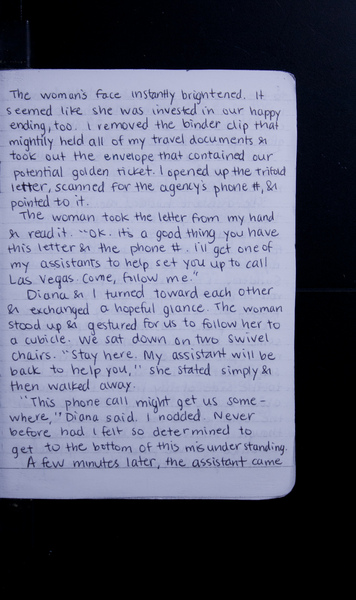 The woman's face instantly brightened. It
seemed like she was invested in our happy
ending, too. I removed the binder clip that
mightily held all of my travel documents &
took out the envelope that contained our
potential golden ticket. I opened up the trifold
letter, scanned for the agency's phone #, &
pointed to it.
The woman took the letter from my hand
& read it. "OK. It's a good thing you have
this letter & the phone #. I'll get one of
my assistants to help set you up to call
Las Vegas. Come, follow me."
Diana & I turned toward each other
& exchanged a hopeful glance. The woman
stood up & gestured for us to follow her to
a cubicle. We sat down on two swivel
chairs. "Stay here. My assistant will be
back to help you," she stated simply &
then walked away.
"This phone call might get us some-
where," Diana said. I nodded. Never
before had I felt so determined to
get to the bottom of this misunderstanding.
A few minutes later, the assistant came